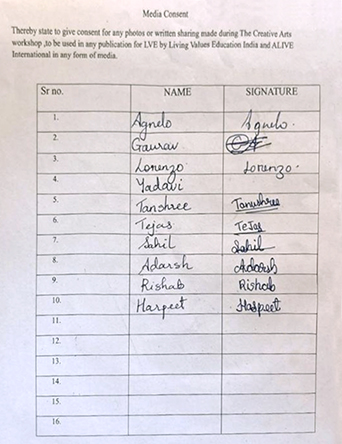 Media Consent
Thereby state to give consent for any photos or written sharing made during The Creative Arts
workshop ,to be used in any publication for LVE by Living Values Education India and ALIVE
International in any form of media.
Sr no. NAME SIGNATURE
1. Agnelo Agnelo.
2. Gaurav
3. Lorenzo Lorenzo.
4. Yadavi
5. Tanshree Tanushree
6. Tejas Tejas
7. Sahil Sahil
8. Adarsh Adarsh
9. Rishab Rishab
10. Harpeet Harpeet
11.
12.
13.
14.
15.
16.